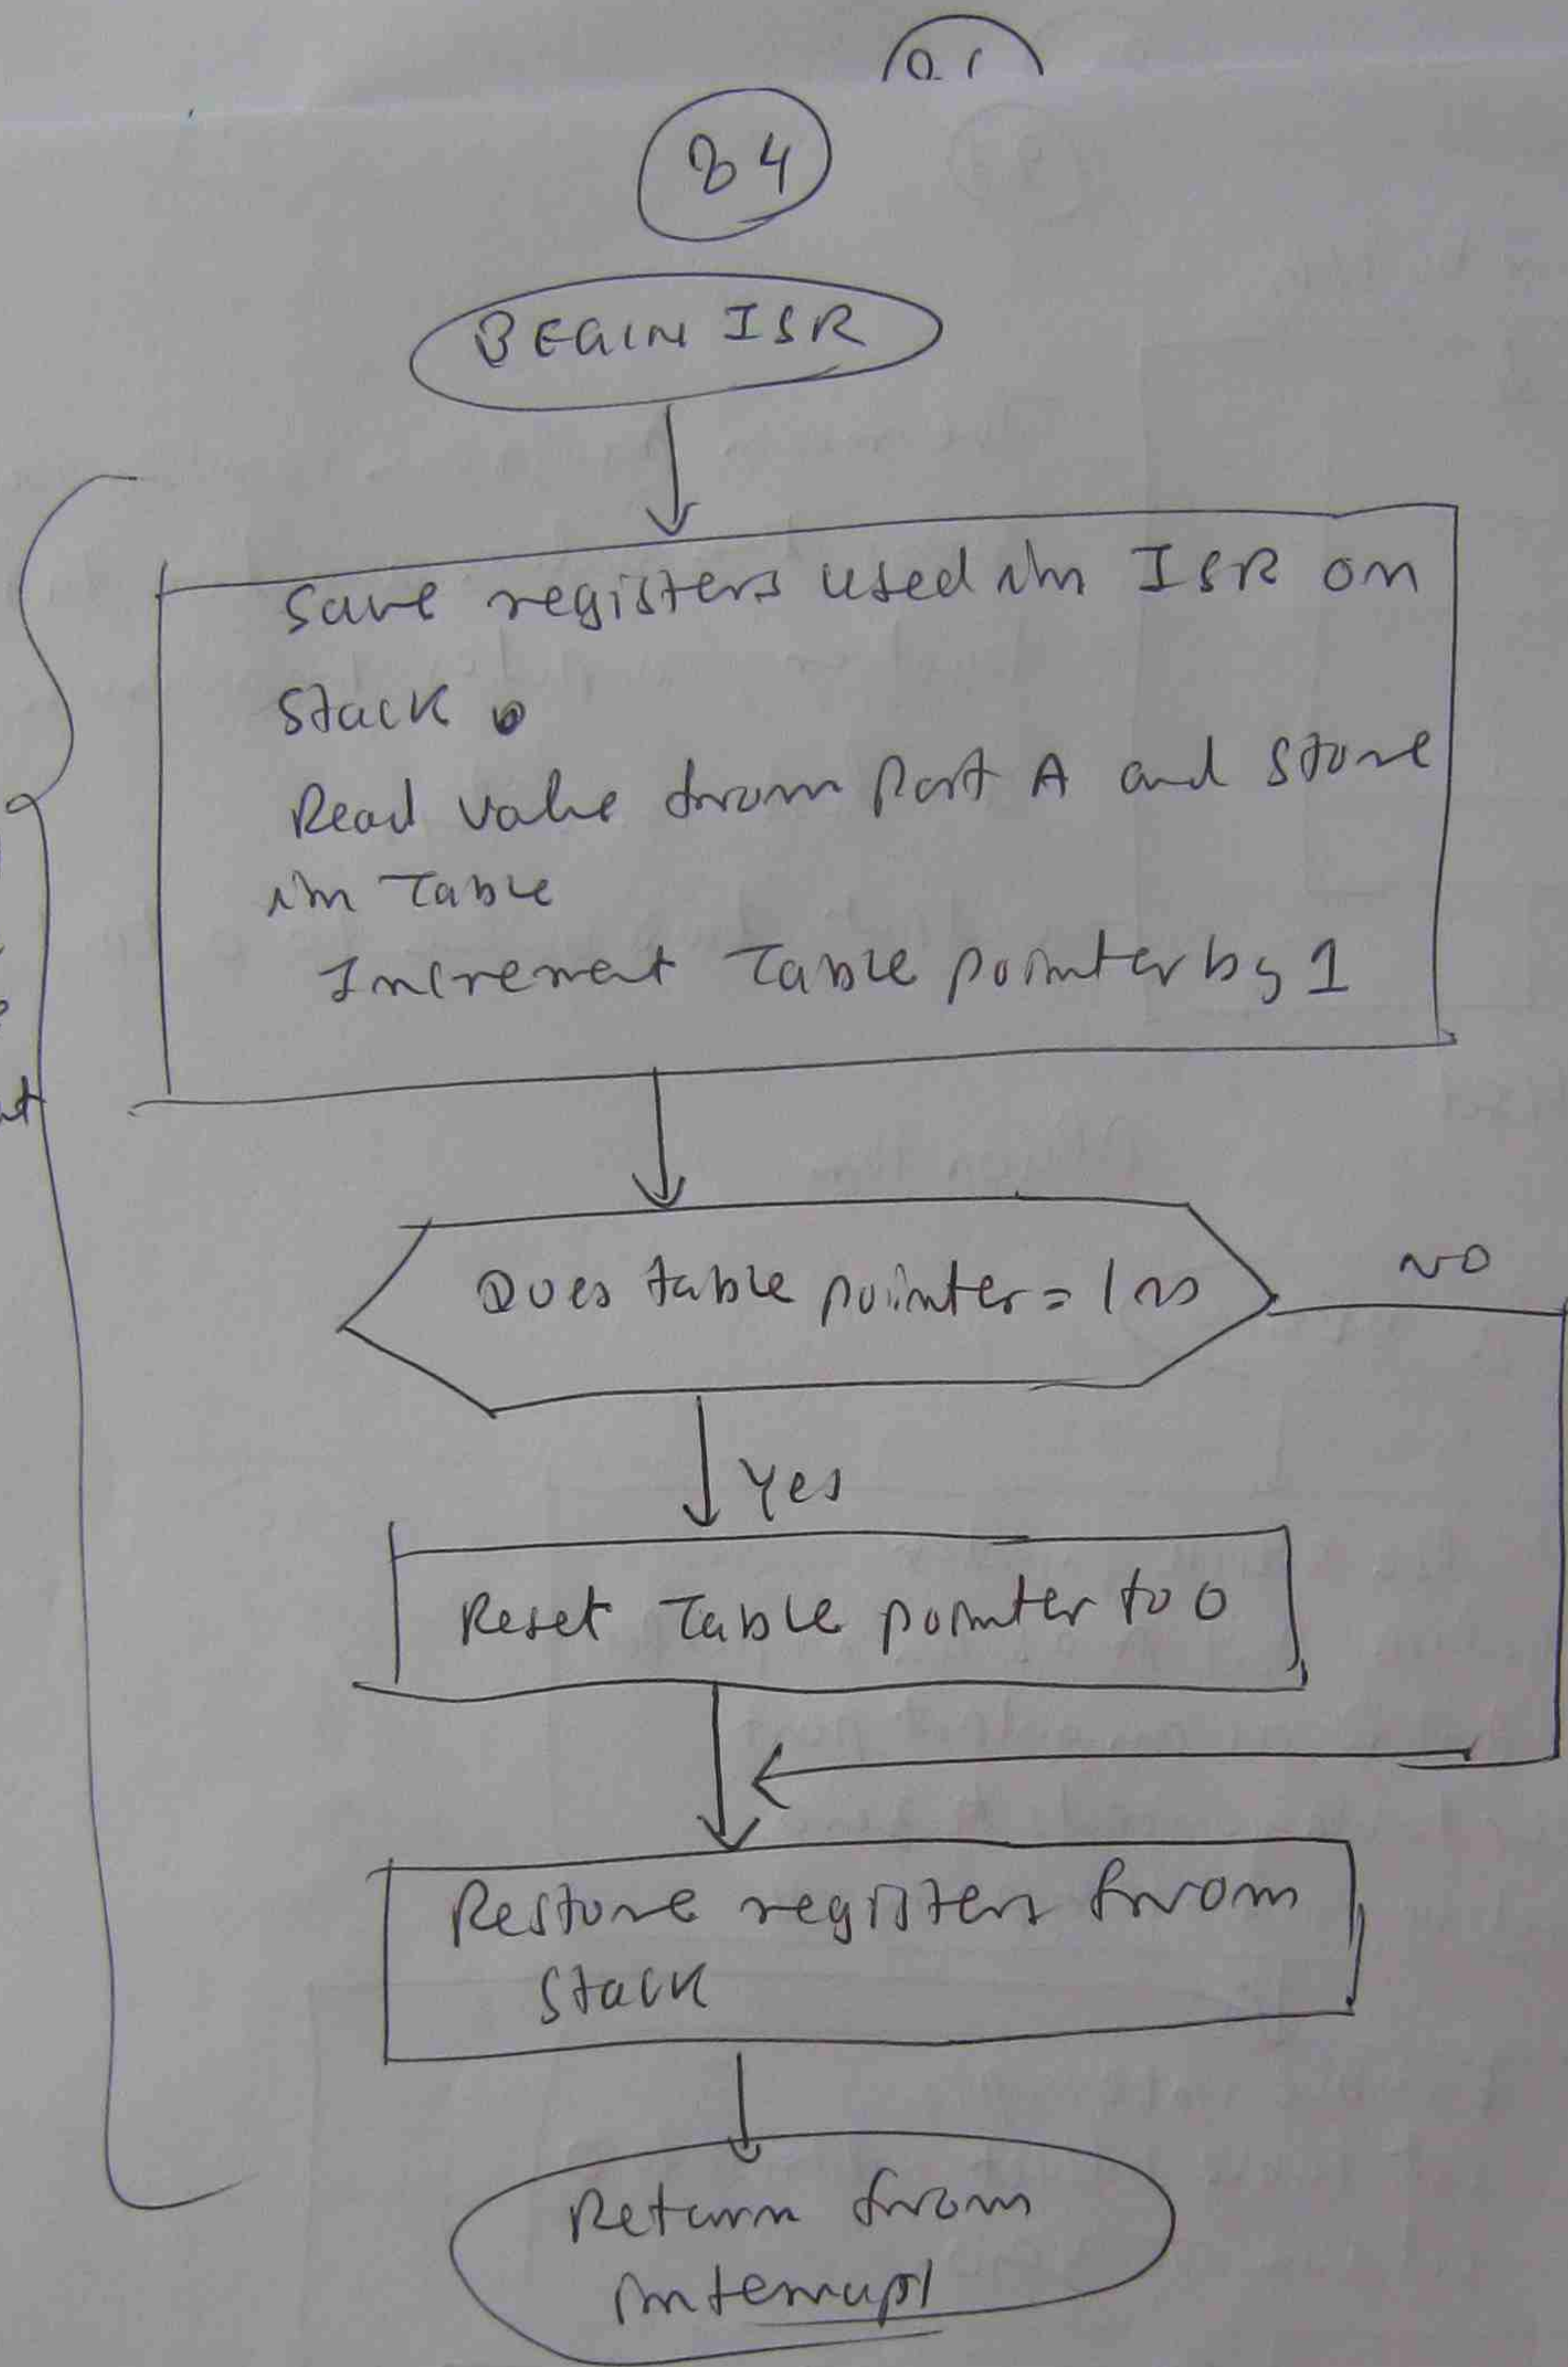 84
BEGIN ISR
Save registers used in ISR on
Stack.
Read value from Port A and store
in Table
Increment Table pointer by 1
Does table pointer =
NO
Yes
Reset Table pointer to 0
Restore registers from
Stack
Return from
interrupt